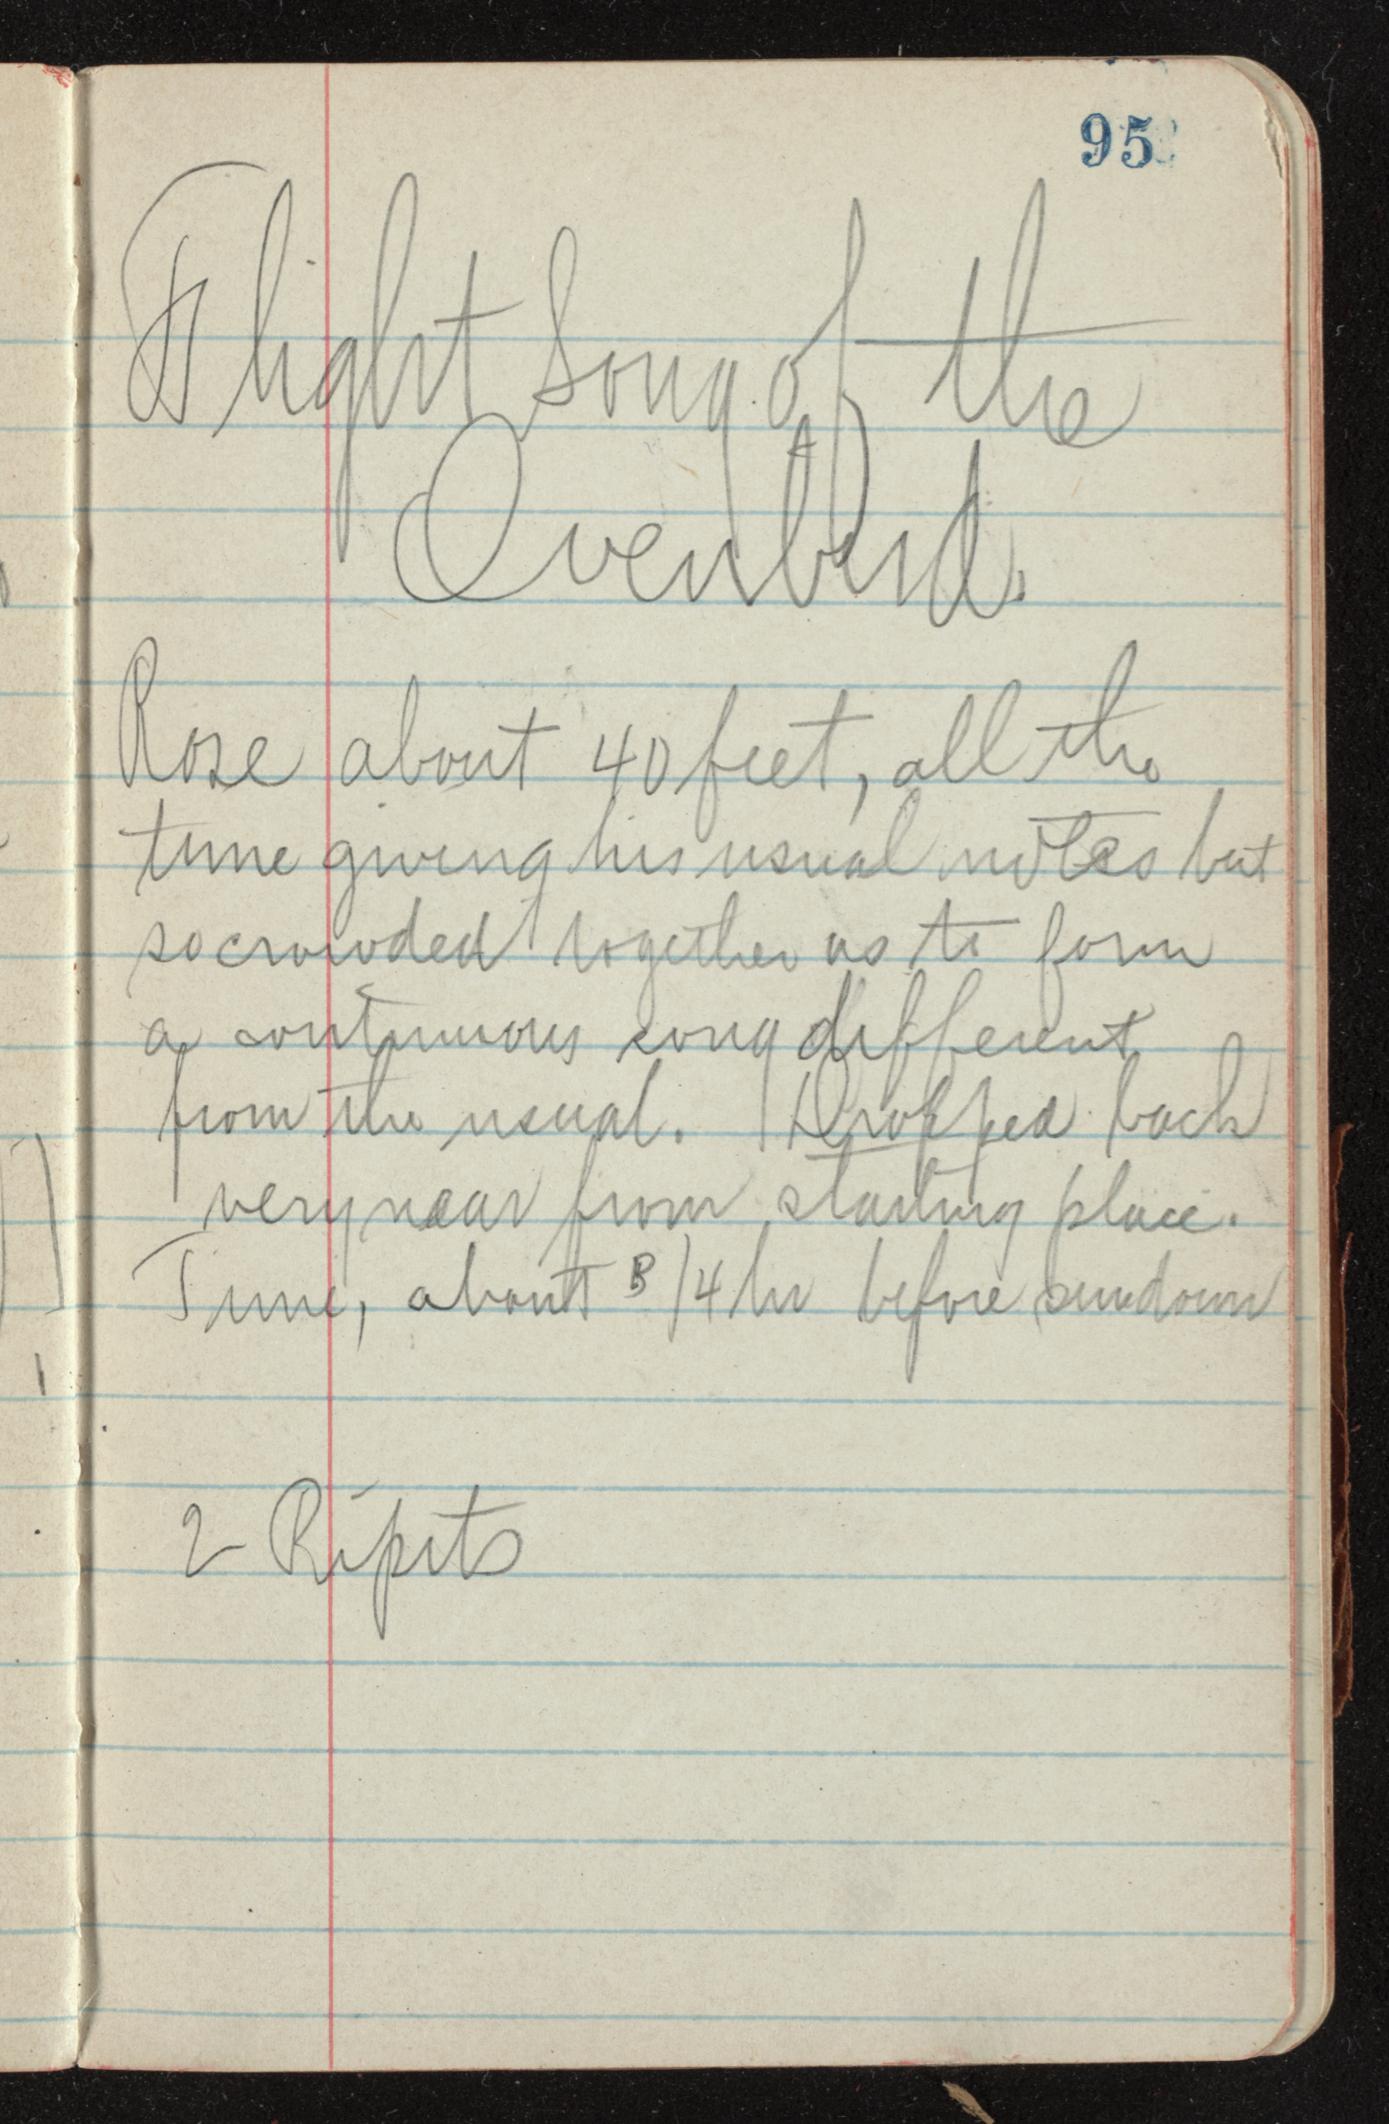 95
Flight Song of the
Ovenbird.
Rose about 40 feet, all the
time giving his usual notes but
so crowded together as to form
a continuous song different
from the usual. Dropped back
very near from starting place.
Time, about 3/4 hr before sundown
2 Ripits